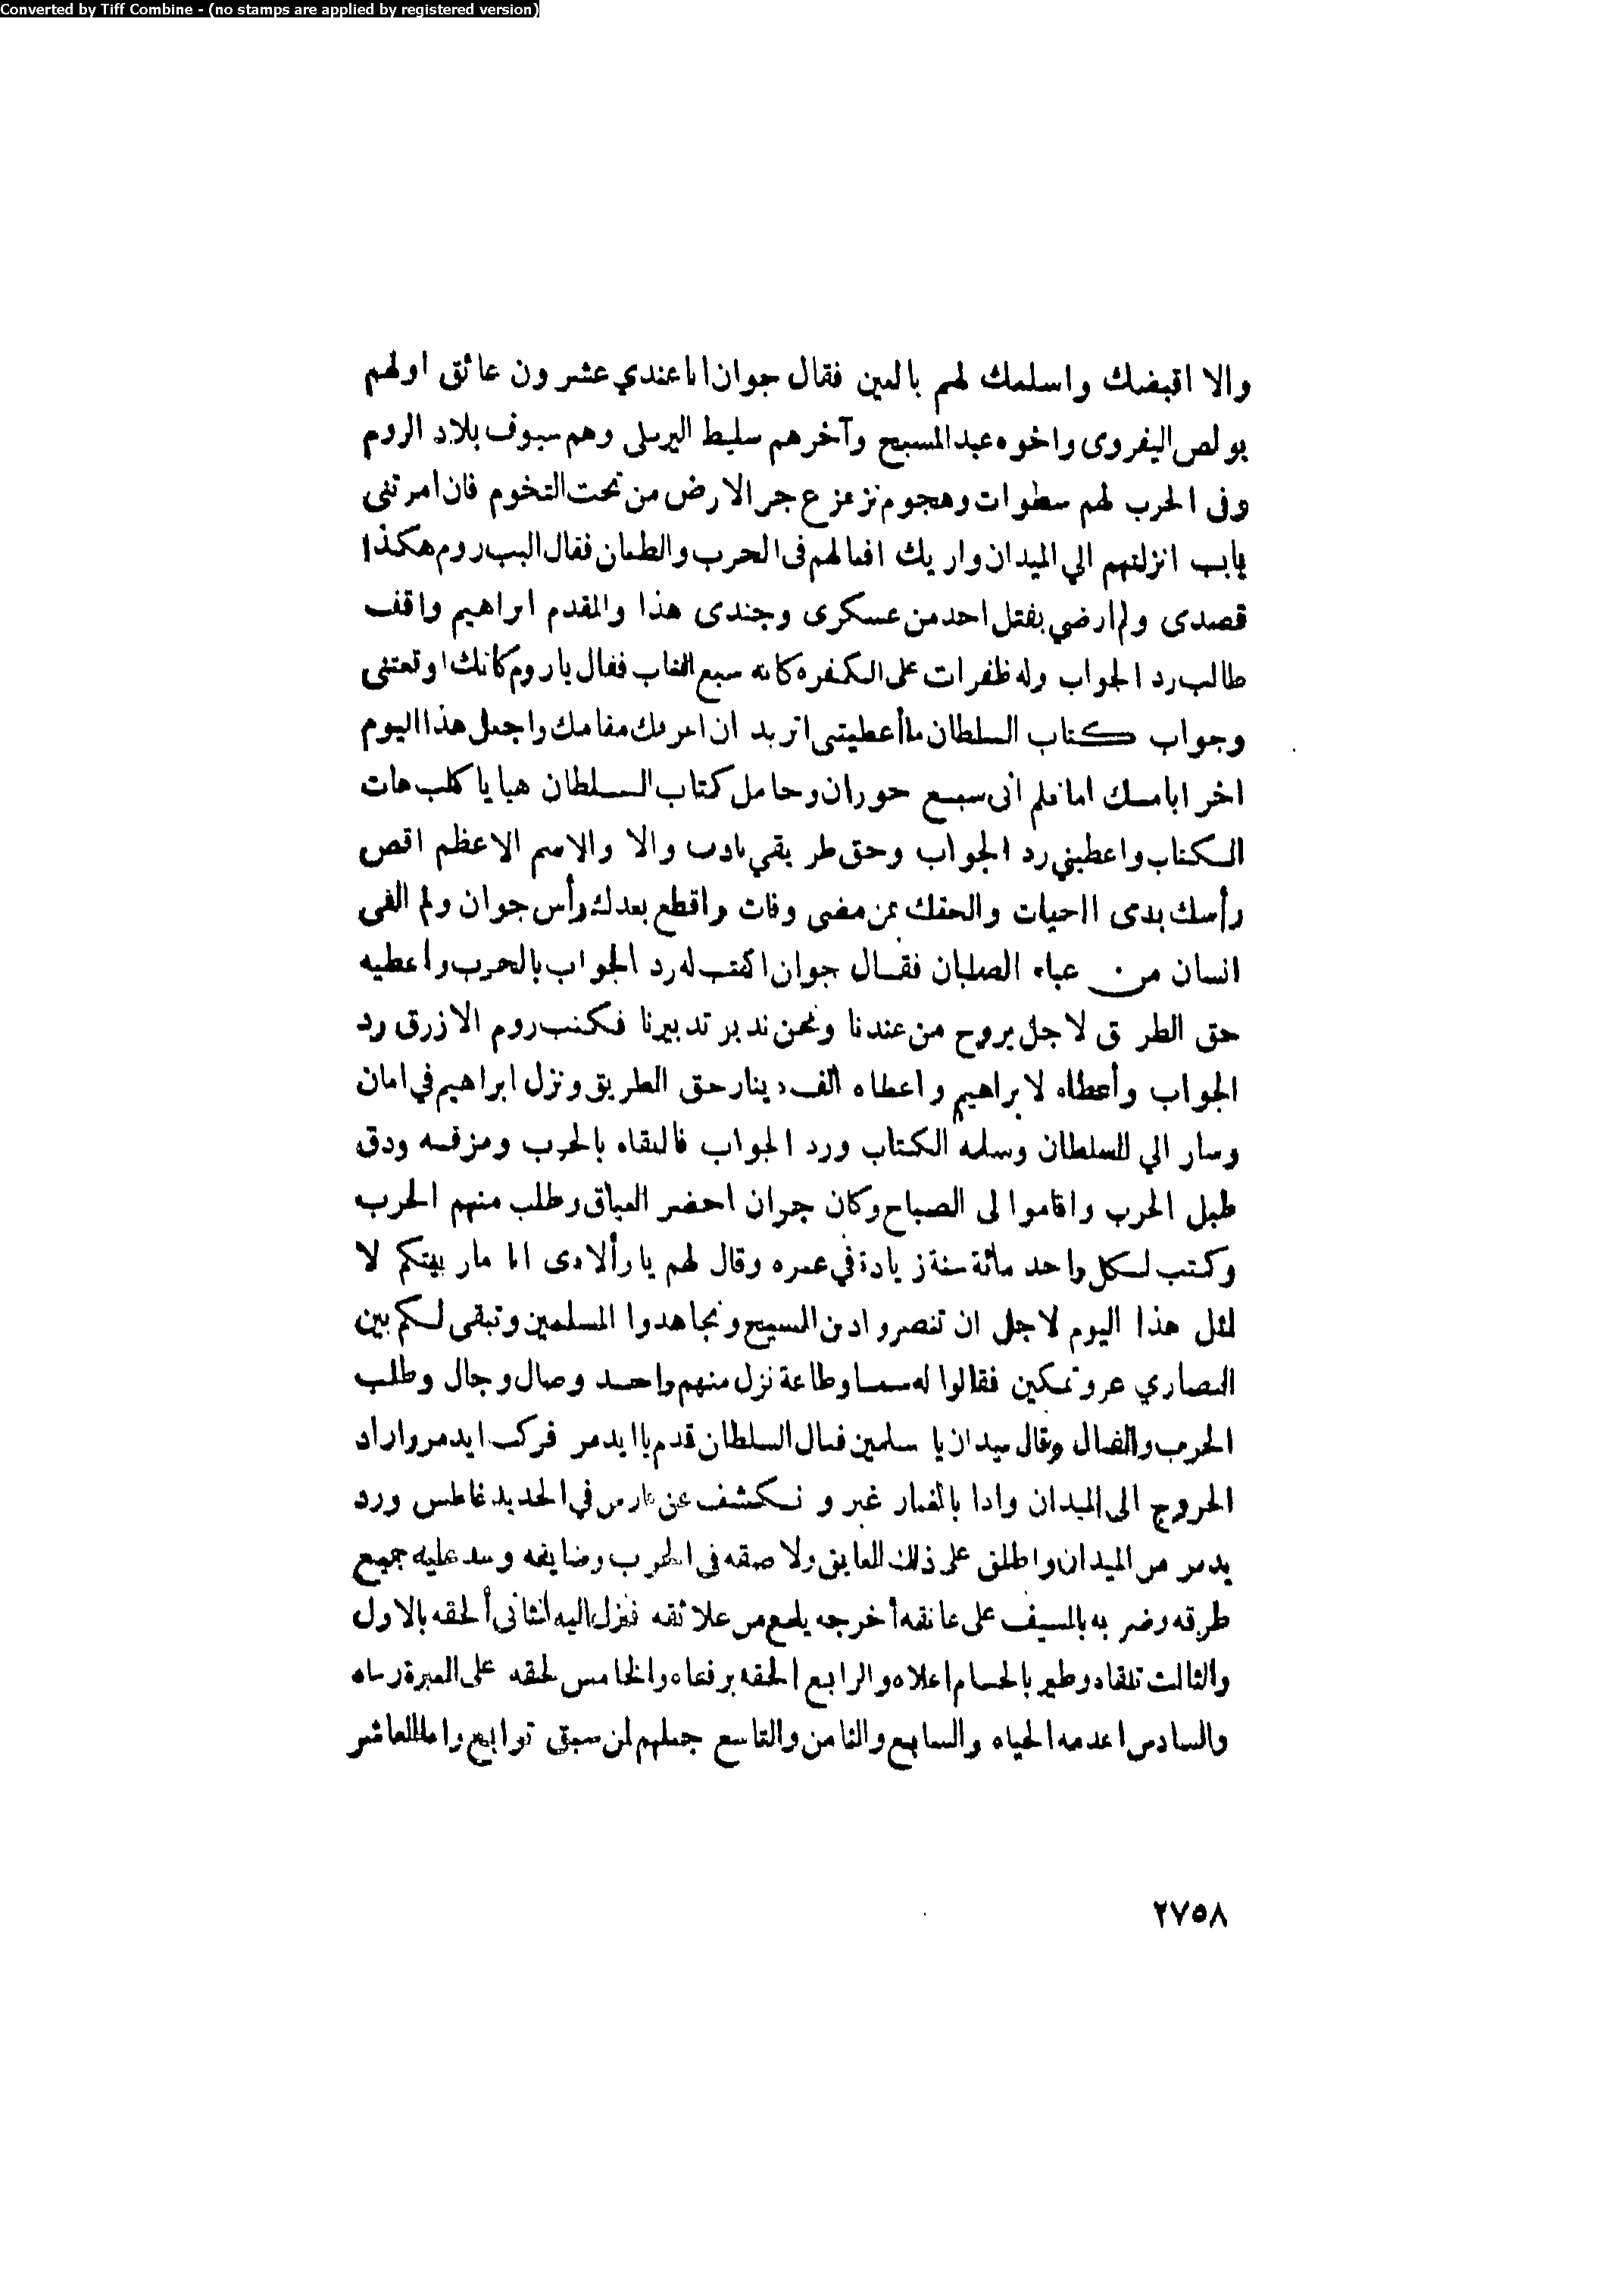 Converted by Tiff Combine - (no stamps are applied by registered version)
والا اقبضك واسلمك لهم باليمين فقال جوان انا عندي عشرون عائق اولهم
بولص اليفروى واخوه عبد المسيح وآخرهم سليط البرسلى وهم سيوف بلاد الروم
وفى الحرب لهم سطوات وهجوم نزعزع حجر الارض من تحت التخوم فان امرتنى
يابب انزلتهم الي الميدان واريك افعالهم فى الحرب والطعان فقال البب روم هكذا
قصدى ولم ارضي بقتل احد من عسكرى وجندى هذا والمقدم ابراهيم واقف
طالب رد الجواب وله ظفرات على الكفره كانه سبع الغاب فقال ياروم كانك اوقعتنى
وجواب كتاب السلطان ما أعطيتنى اتريد ان اعرفك مقامك واجعل هذا اليوم
اخر ايامك اما تعلم انى سبع حوران وحامل كتاب السلطان هيا يا كلب هات
الكتاب واعطيني رد الجواب وحق طريقي بادب والا والاسم الاعظم اقص
رأسك بدى الحيات والحقك بمن مضى وفات واقطع بعدك رأس جوان ولم القى
انسان من عباد الصلبان فقال جوان اكتب له رد الجواب بالحرب وأعطيه
حق الطر ق لاجل يروح من عندنا ونحن ندبر تدبيرنا فكتب روم الازرق رد
الجواب وأعطاه لابراهيم واعطاه الف دينار حق الطريق ونزل ابراهيم في امان
وسار الي السلطان وسلمه الكتاب ورد الجواب فالتقاه بالحرب ومزقه ودق
طبل الحرب واقاموا لى الصباح وكان جوان احضر العياق وطلب منهم الحرب
وكتب لكل واحد مائة سنة زيادة في عمره وقال لهم يا أولادى انا مار بيتكم لا
لمثل هذا اليوم لاجل ان تنصروا دين المسيح وتجاهدوا المسلمين وتبقى لكم بين
النصاري عز وتمكين فقالوا له سمعا وطاعة نزل منهم واحد وصال وجال وطلب
الحرب والقتال وقال ميدان يا سلمين فقال السلطان قدم يا ايدمر فركب ايدمر واراد
الخروج الى الميدان واذا بالغبار غبر و نكشف عن فارس في الحديد غاطس ورد
يدمر من الميدان واطلق على ذلك العايق ولاصقه فى الحرب وضايقه وسد عليه جميع
طرقه وضربه بالسيف على عاتقه أخرجه يلمع من علائقه فنزل اليه الثانى ألحقه بالاول
والثالث تلقاه وطير بالحسام اعلاه والرابع الحقه برفقاه والخامس لحقه على العبرة رساه
والسادس اعدمه الحياه والسابع والثامن والتاسع جعلهم لمن سبق توابع واما العاشر
٢٧٥٨